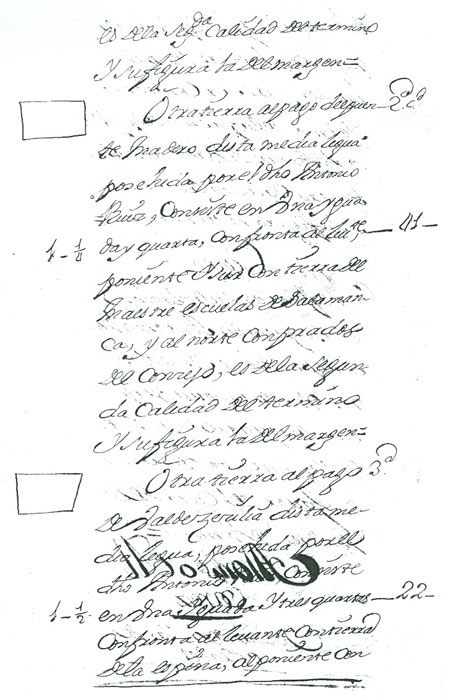 es de la Seg.da Calidad del termino
Y su figura la del margen=
Otra tierra al pago del puen- 2.a C.d
te Madero, dista media legua
posehida por el dho Antonio
Ruiz, Consiste en Una ygua
1-1/4 da y quarta, Confronta al lev.te, 41-
poniente Y sur Con tierra del
Maestre escuelas de Salaman
ca, y al norte Con prados
del Conzejo, es de la Segun
da Calidad del termino
Y su figura la del margen=
Otra tierra al pago 3.a
de dista me
dia legua, posehida por el
dho Antonio Consiste
1-1/2 en Una Yguada Y tres quartas 22-
Confronta al levante Con tierra
de la espina, al poniente Con